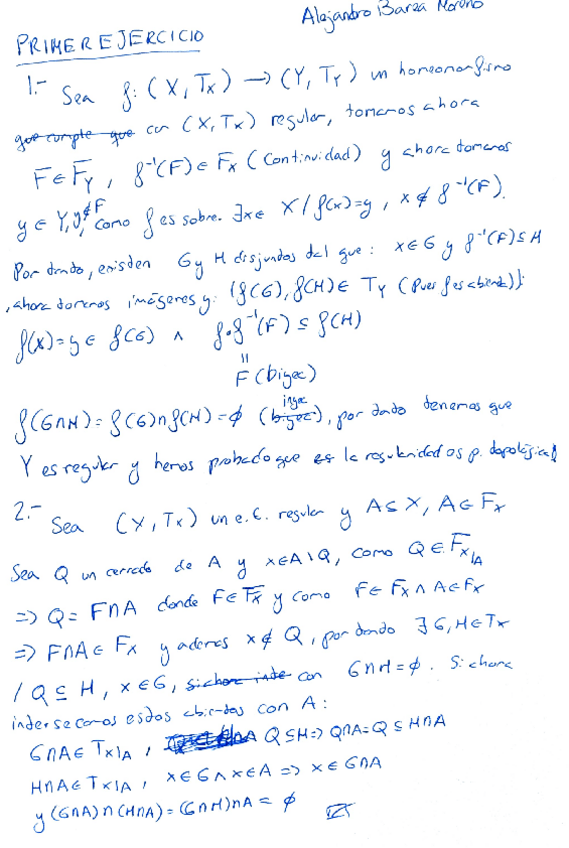 Alejandro Barza Moreno
PRIMER EJERCICIO
1.- Sea f: (X, Tx) → (Y, TY) un homeomorfismo
que cumple que con (X, Tx) regular, tomamos ahora
F ∈ FY, f⁻¹(F) ∈ Fx (Continuidad) y ahora tomamos
y ∈ Y, y ∉ F, como f es sobre. ∃x ∈ X / f(x)=y, x ∉ f⁻¹(F).
Por tanto, existen G y H disjuntos tal que: x ∈ G y f⁻¹(F) ⊆ H
, ahora tomamos imágenes y: (f(G), f(H) ∈ TY (Pues f es abierta)):
f(x) = y ∈ f(G) ∧ f∘f⁻¹(F) ⊆ f(H)
=
F (biyec)
f(G∩H) = f(G)∩f(H) = ∅ (biyec) inyec, por tanto tenemos que
Y es regular y hemos probado que es la regularidad es p. topológica
2.- Sea (X, Tx) un e.t. regular y A ⊆ X, A ∈ Fx
Sea Q un cerrado de A y x ∈ A\Q, como Q ∈ Fx|A
=> Q = F∩A donde F ∈ Fx y como F ∈ Fx ∧ A ∈ Fx
=> F∩A ∈ Fx y además x ∉ Q, por tanto ∃ G, H ∈ Tx
/ Q ⊆ H, x ∈ G, si ahora inte con G∩H = ∅. Si ahora
intersecamos estos abiertos con A:
G∩A ∈ Tx|A, Q ⊆ H => Q∩A = Q ⊆ H∩A
H∩A ∈ Tx|A, x ∈ G ∧ x ∈ A => x ∈ G∩A
y (G∩A)∩(H∩A) = (G∩H)∩A = ∅